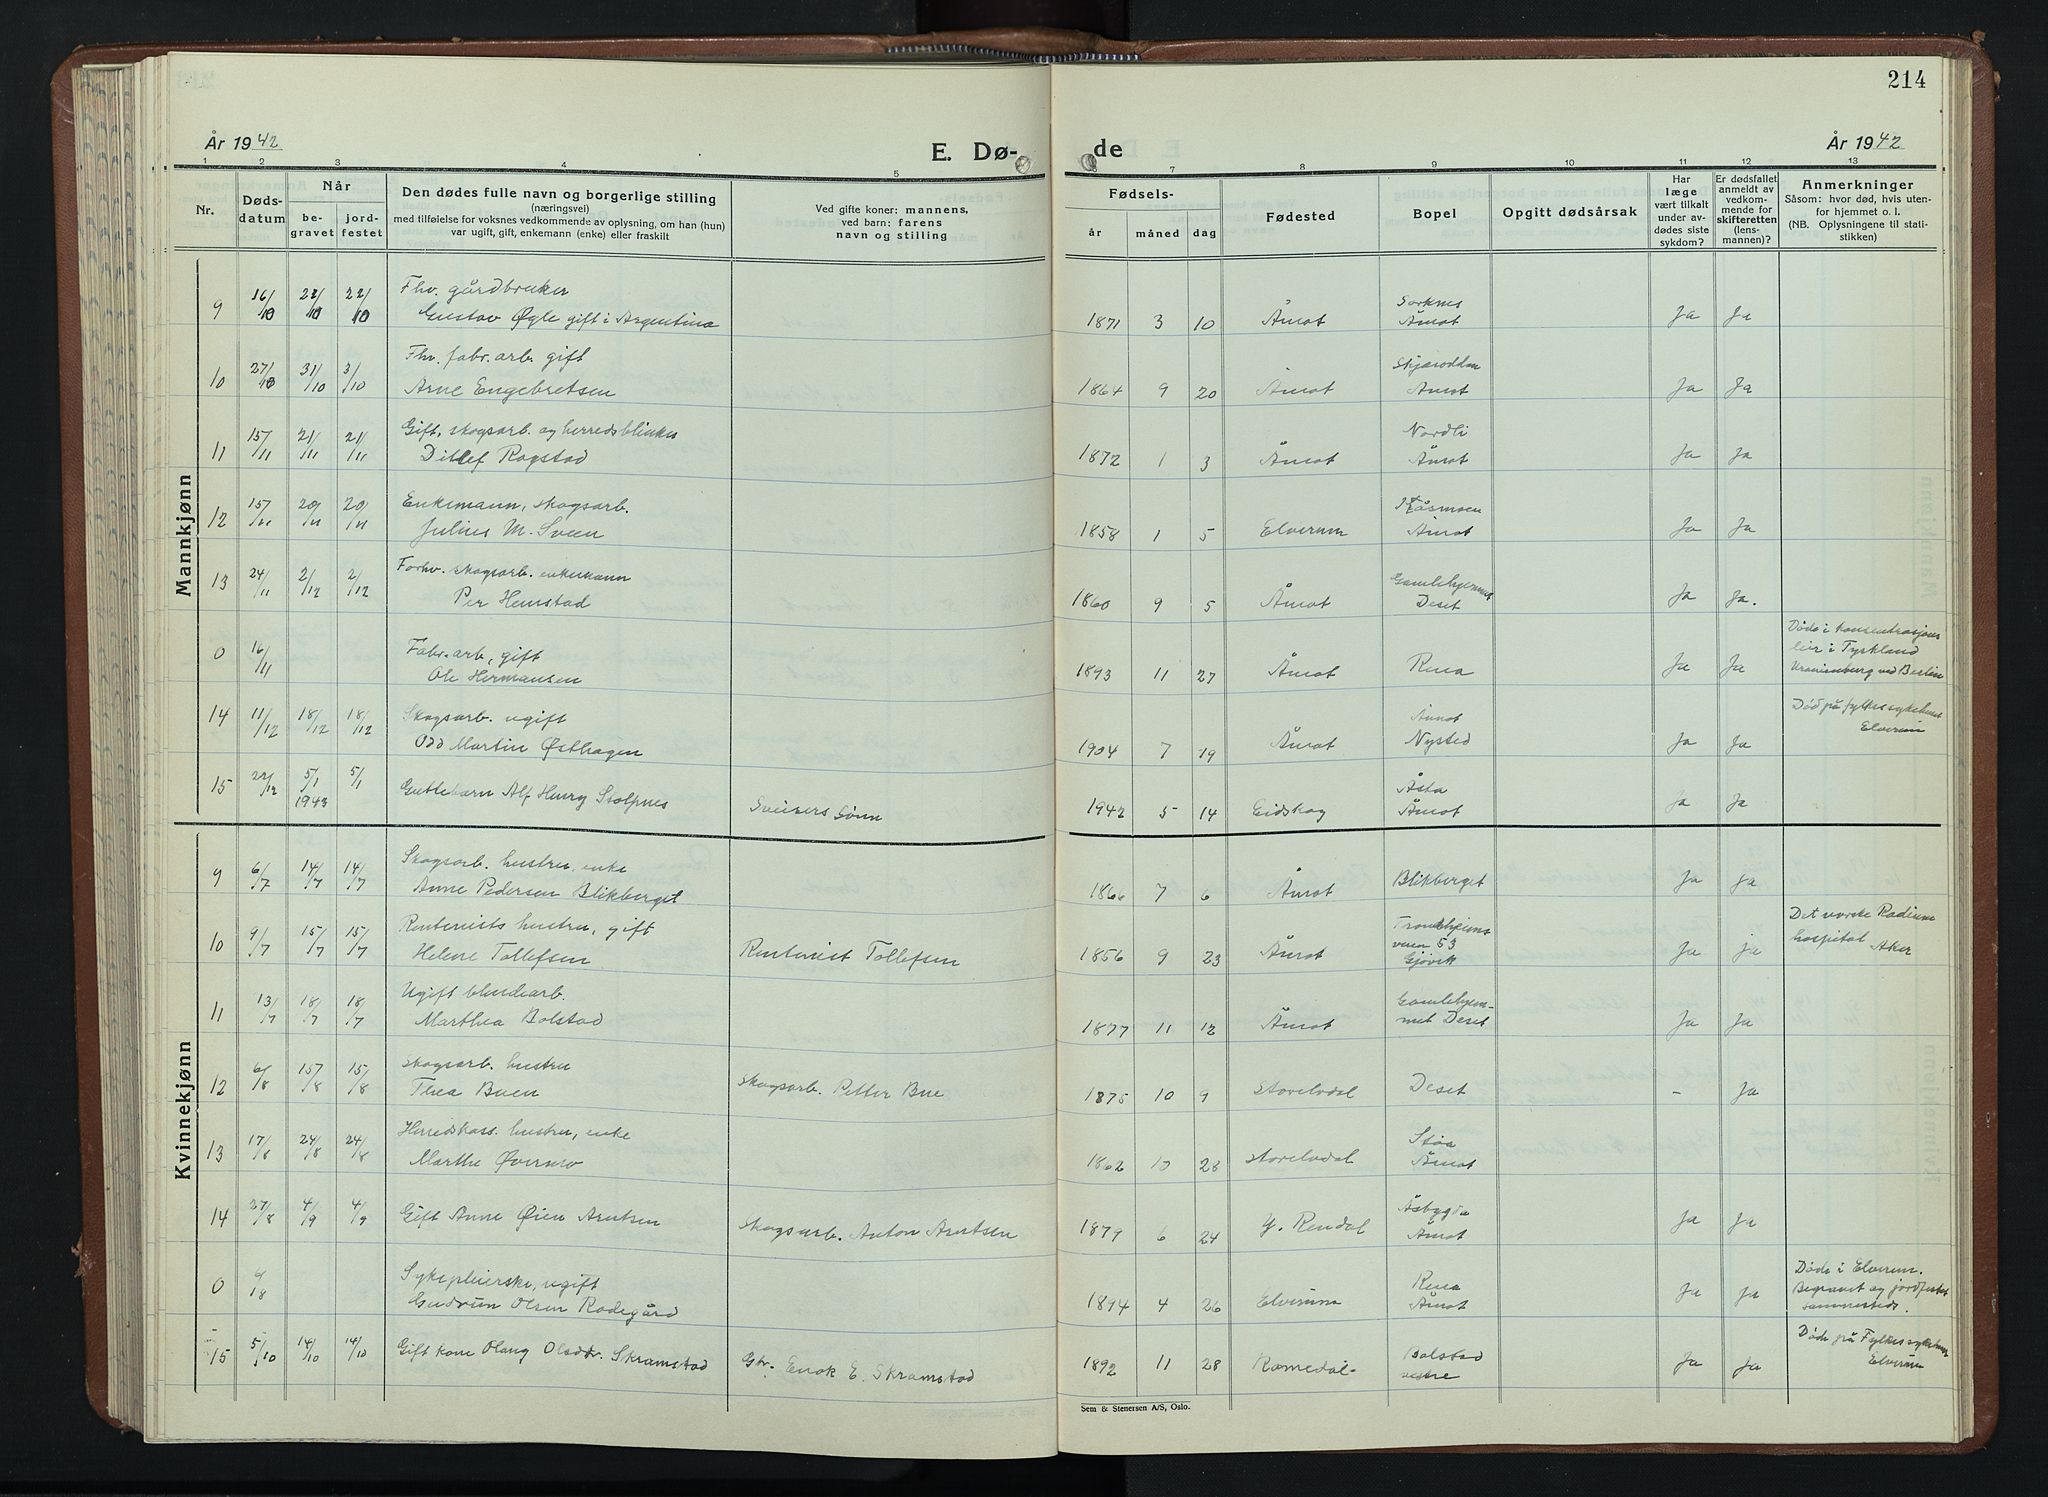 214
År 1942
E. Dø-
de
År 1942
1 2 3 4 5 6 7 8 9 10 11 12 13
Nr.
Døds-
datum
Når
be-
gravet
jord-
festet
Den dødes fulle navn og borgerlige stilling
(næringsvei)
med tilføielse for voksnes vedkommende av oplysning, om han (hun)
var ugift, gift, enkemann (enke) eller fraskilt
Ved gifte koner: mannens,
ved barn: farens
navn og stilling
Fødsels-
år
måned
dag
Fødested
Bopel
Opgitt dødsårsak
Har
læge
vært tilkalt
under av-
dødes siste
sykdom?
Er dødsfallet
anmeldt av
vedkom-
mende for
skifteretten
(lens-
mannen)?
Anmerkninger
Såsom: hvor død, hvis uten-
for hjemmet o. l.
(NB. Oplysningene til stati-
stikken)
Mannkjønn
9 16/10 22/10 22/10 Fhv. gårdbruker
Gustav Øgle gift i Argentina 1871 3 10 Åmot Sorknes
Åmot Ja Ja
10 27/10 31/10 3/10 Fhv. fabr. arb. gift
Arne Engebretsen 1864 9 20 Åmot Skjærodden
Åmot Ja Ja
11 15/11 21/11 21/11 Gift, skogsarb. og herredsblinker
Ditlef Rogstad 1872 1 3 Åmot Nordli
Åmot Ja Ja
12 15/11 20/11 20/11 Enkemann, skogsarb.
Julius M. Sveen 1858 1 5 Elverum Råsmoen
Åmot Ja Ja
13 24/11 2/12 2/12 Forhv. skogsarb. enkemann
Per Hemstad 1860 9 5 Åmot Gamlehjemmet
Deset Ja Ja.
0 16/11 Fabr. arb, gift
Ole Hermansen 1893 11 27 Åmot Rena Ja Ja Døde i konsentrasjons
leir i Tyskland
Uranienberg ved Berlin
14 11/12 18/12 18/12 Skogsarb. ugift
Odd Martin Østhagen 1904 7 19 Åmot Åmot
Nysted Ja Ja Død på fylkessykehuset
Elverum
15 22/12 5/1 1943 5/1 Guttebarn Alf Henry Stolpnes Sveisers sønn 1942 5 14 Eidskog Åsta
Åmot Ja Ja
Kvinnekjønn
9 6/7 14/7 14/7 Skogsarb. hustru, enke
Anne Pedersen Blikberget 1866 7 6 Åmot Blikberget Ja Ja
10 9/7 15/7 15/7 Renteniets hustru, gift
Helene Tollefsen Renteniet Tollefsen 1856 9 23 Åmot Trondhjems
veien 53
Gjøvik Ja ja Det norske Radium
hospital Aker
11 13/7 18/7 18/7 Ugift
Marthea Bolstad 1877 11 12 Åmot Gamlehjem-
met Deset Ja Ja
12 6/8 15/8 15/8 Skogsarb. hustru
Thea Buen Skogsarb. Petter Bue 1875 10 9 Storelvdal Deset - Ja
13 17/8 24/8 24/8 Herredskass. hustru, enke
Marthe Øvermo 1862 10 28 Storelvdal Støa
Åmot
14 27/8 4/9 4/9 Gift Anne Øien Arntsen Skogsarb. Anton Arntsen 1879 6 24 Y. Rendal Åsbygda
Åmot Ja Ja
0 9/18 Sykepleierske, ugift
Gudrun Olsen Rodegård 1894 4 26 Elverum Rena
Åmot Ja Ja Døde i Elverum.
Begravet og jordfestet
sammesteds.
15 5/10 14/10 14/10 Gift kone Olaug Olsdtr. Skramstad Gbr. Enok E. Skramstad 1892 11 28 Romedal- Bolstad
vestre Ja Ja Døde på Fylkessykehus
Elverum
Sem & Stenersen A/S, Oslo.